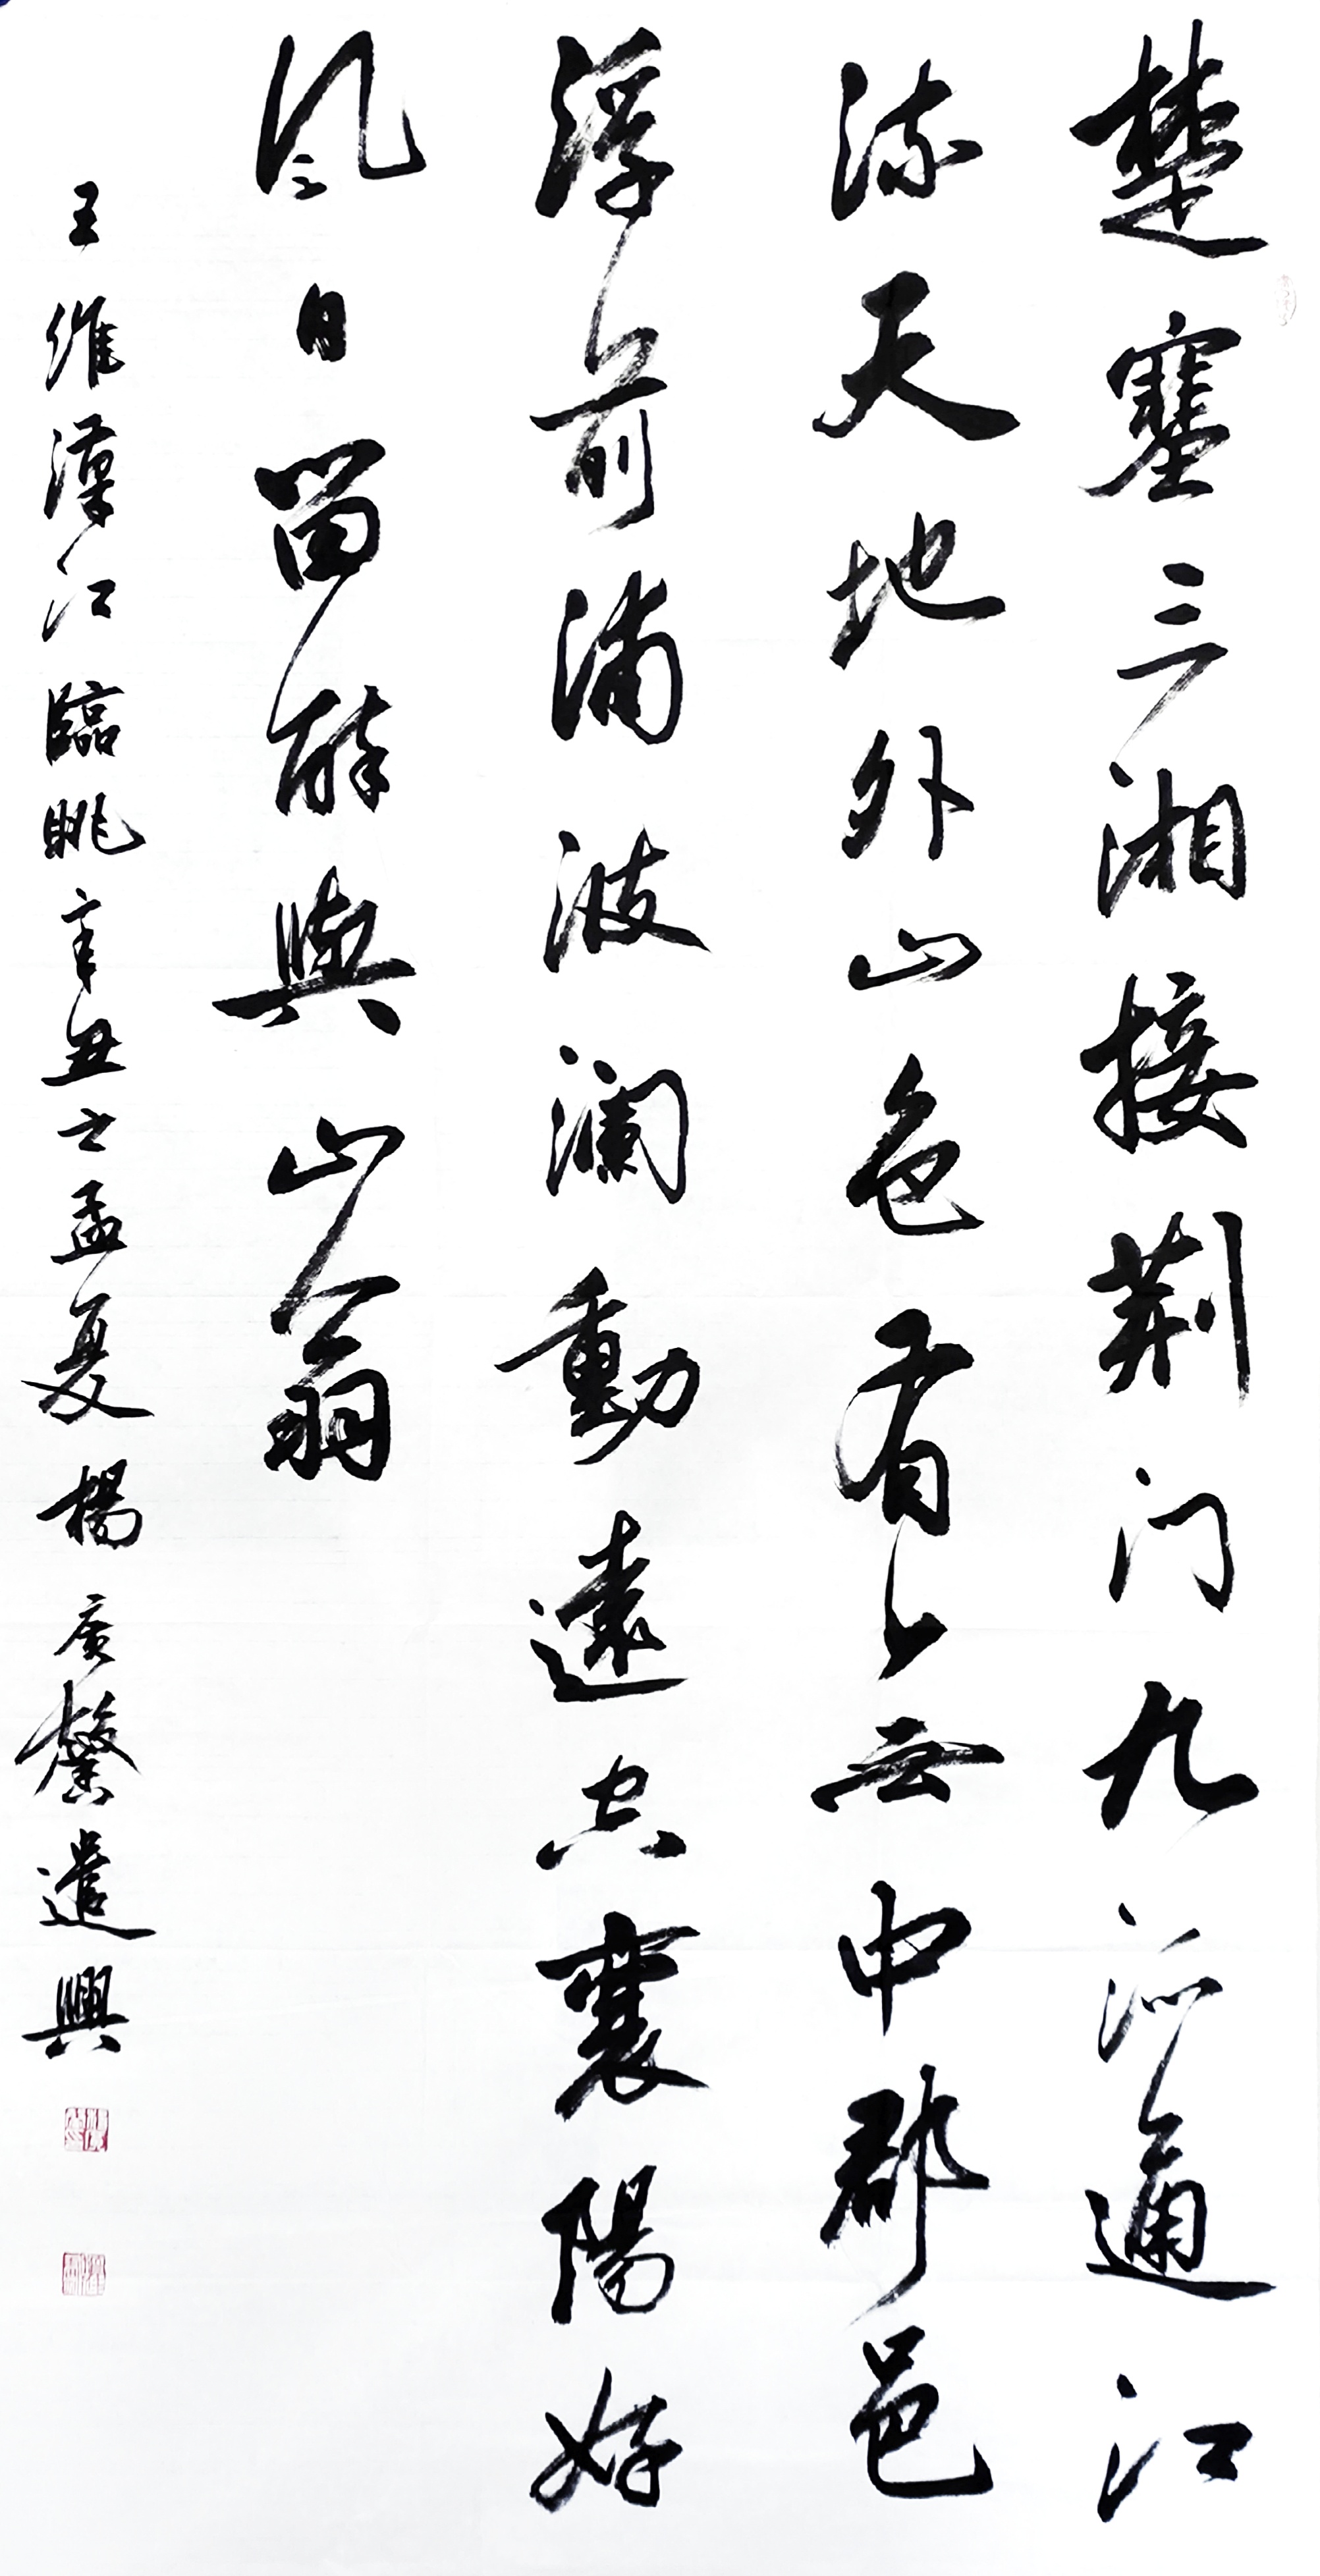 楚塞三湘接荆门九派通江
流天地外山色有无中郡邑
浮前浦波澜動遠空襄陽好
风日留醉與山翁
王維漢江臨眺辛丑之孟夏楊广馨遣興